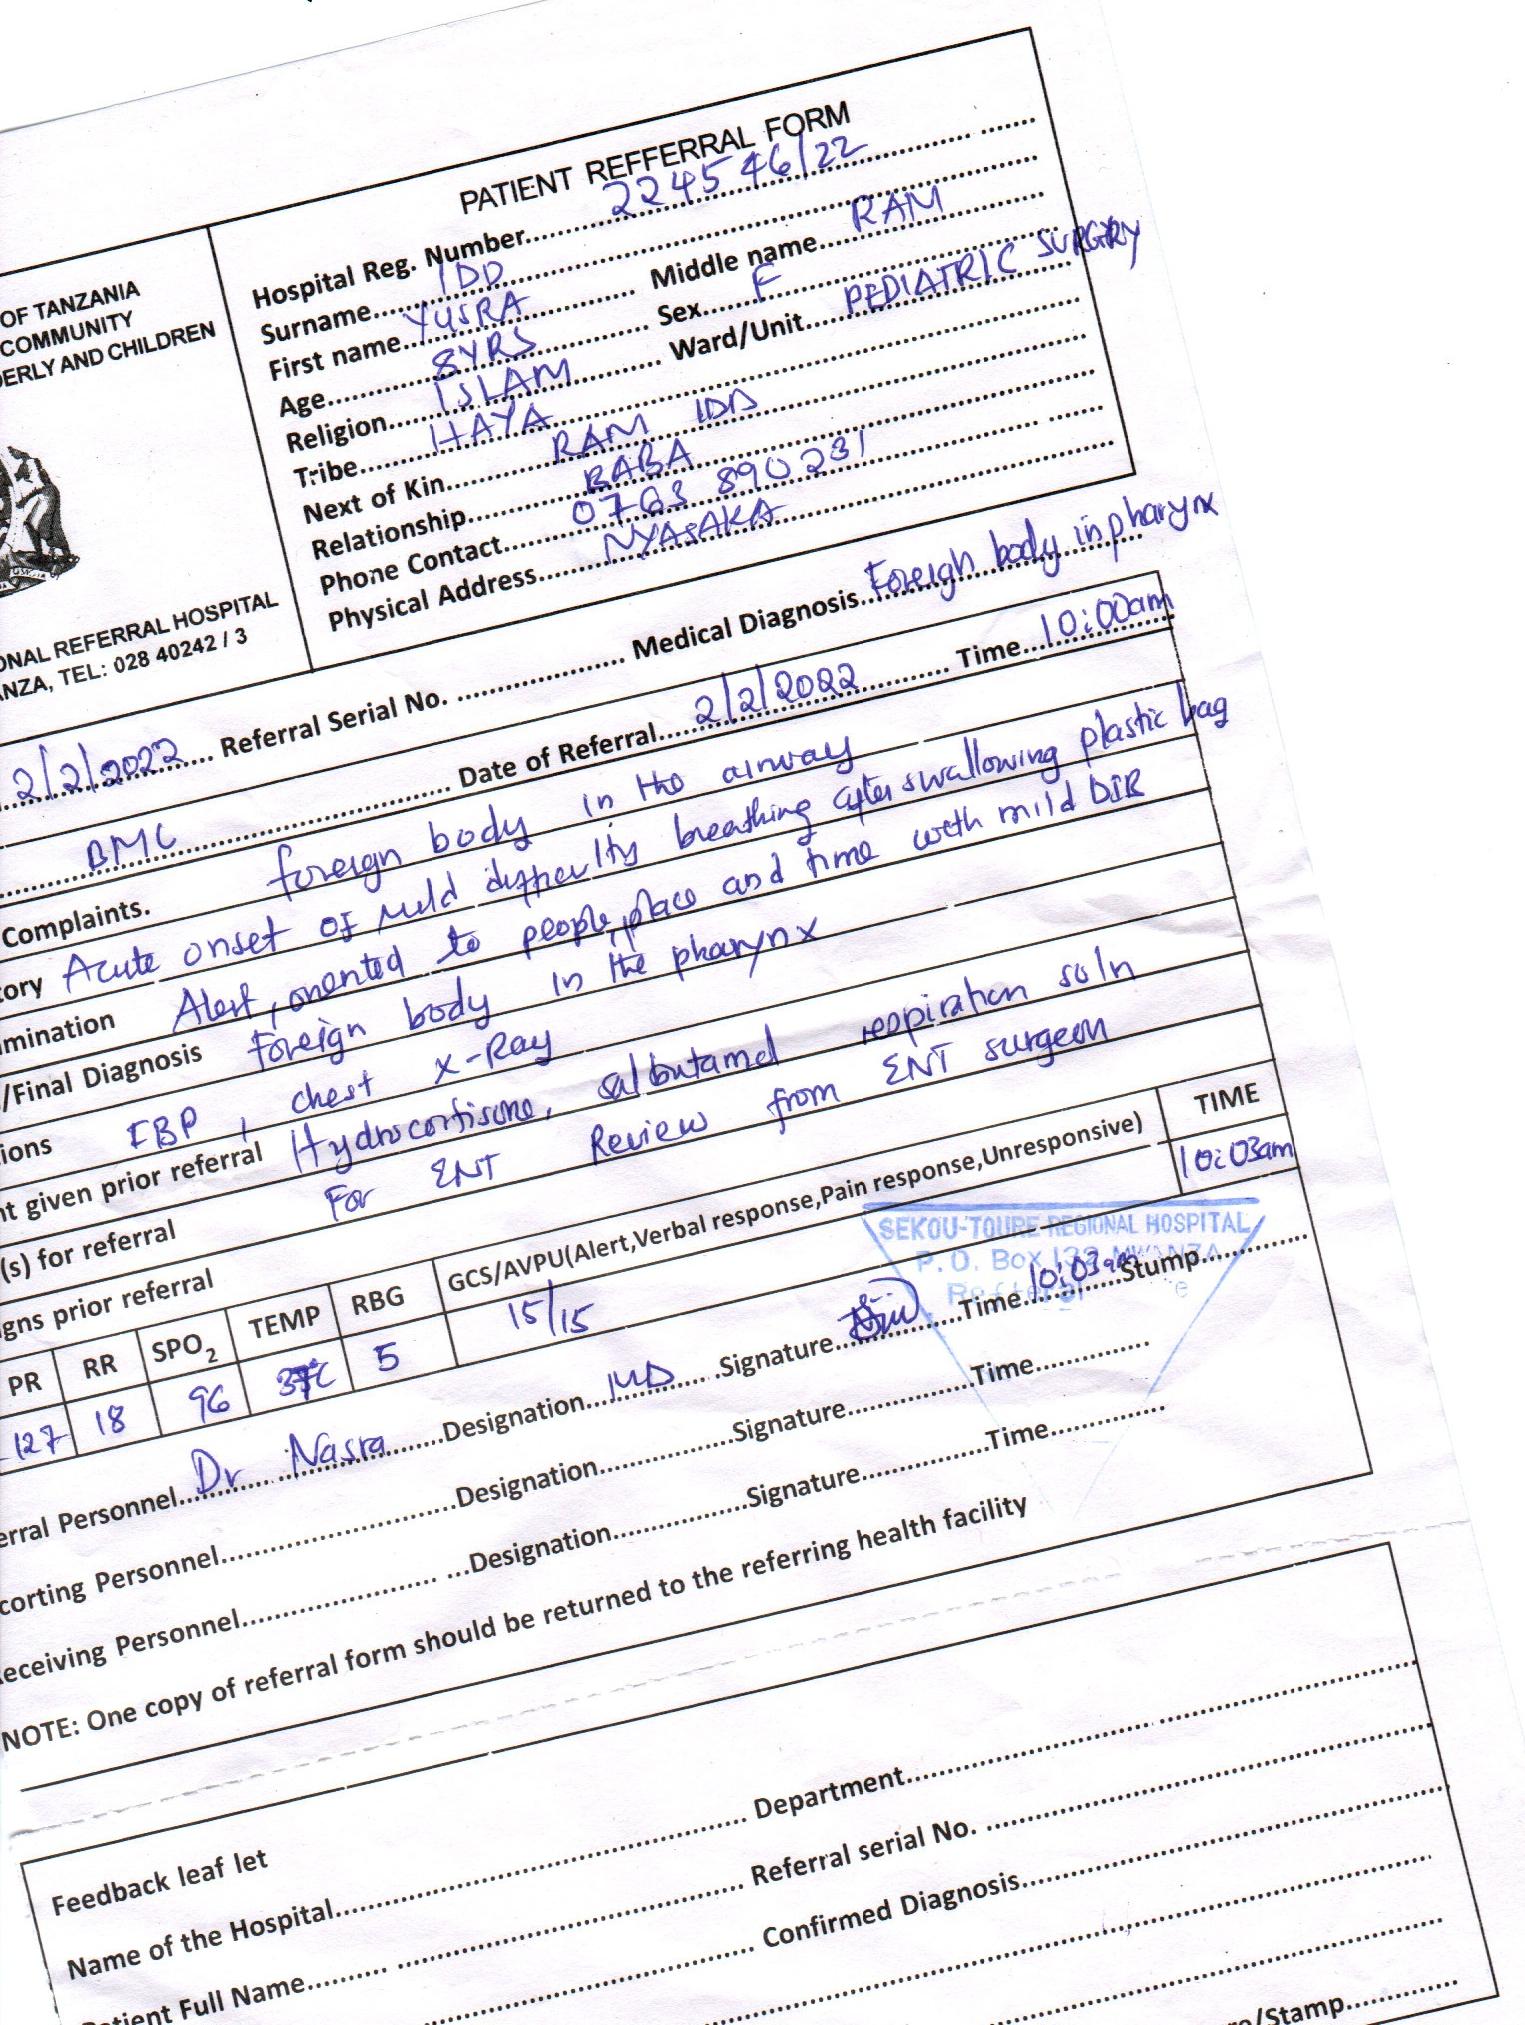 PATIENT REFFERRAL FORM
OF TANZANIA
COMMUNITY
ERLY AND CHILDREN
ONAL REFERRAL HOSPITAL
NZA, TEL: 028 40242 / 3
Hospital Reg. Number 224546/22
Surname IDD Middle name RAM
First name YUSRA Sex F
Age 8YRS Ward/Unit PEDIATRIC SURGERY
Religion ISLAM
Tribe HAYA
Next of Kin RAM IDD
Relationship BABA
Phone Contact 0763 890231
Physical Address NYASAKA
2/2/2022 Referral Serial No. Medical Diagnosis Foreign body in pharynx
BMC Date of Referral 2/2/2022 Time 10:00am
Complaints. foreign body in the airway
tory Acute onset of mild difficulty breathing after swallowing plastic bag
mination Alert, oriented to people, place and time with mild DIB
/Final Diagnosis Foreign body in the pharynx
ions FBP, chest x-Ray
nt given prior referral Hydrocortisone, salbutamol respiration soln
(s) for referral For ENT Review from ENT surgeon
igns prior referral
PR RR SPO2 TEMP RBG GCS/AVPU(Alert,Verbal response,Pain response,Unresponsive) TIME
127 18 96 37°C 5 15/15 10:03am
SEKOU-TOURE REGIONAL HOSPITAL
P.O. Box 132 MWANZA
erral Personnel Dr Nasra Designation MD Signature Time 10:03am Stump
corting Personnel Designation Signature Time
eceiving Personnel Designation Signature Time
NOTE: One copy of referral form should be returned to the referring health facility
Feedback leaf let
Name of the Hospital Department
Patient Full Name Referral serial No.
Confirmed Diagnosis
e/Stamp